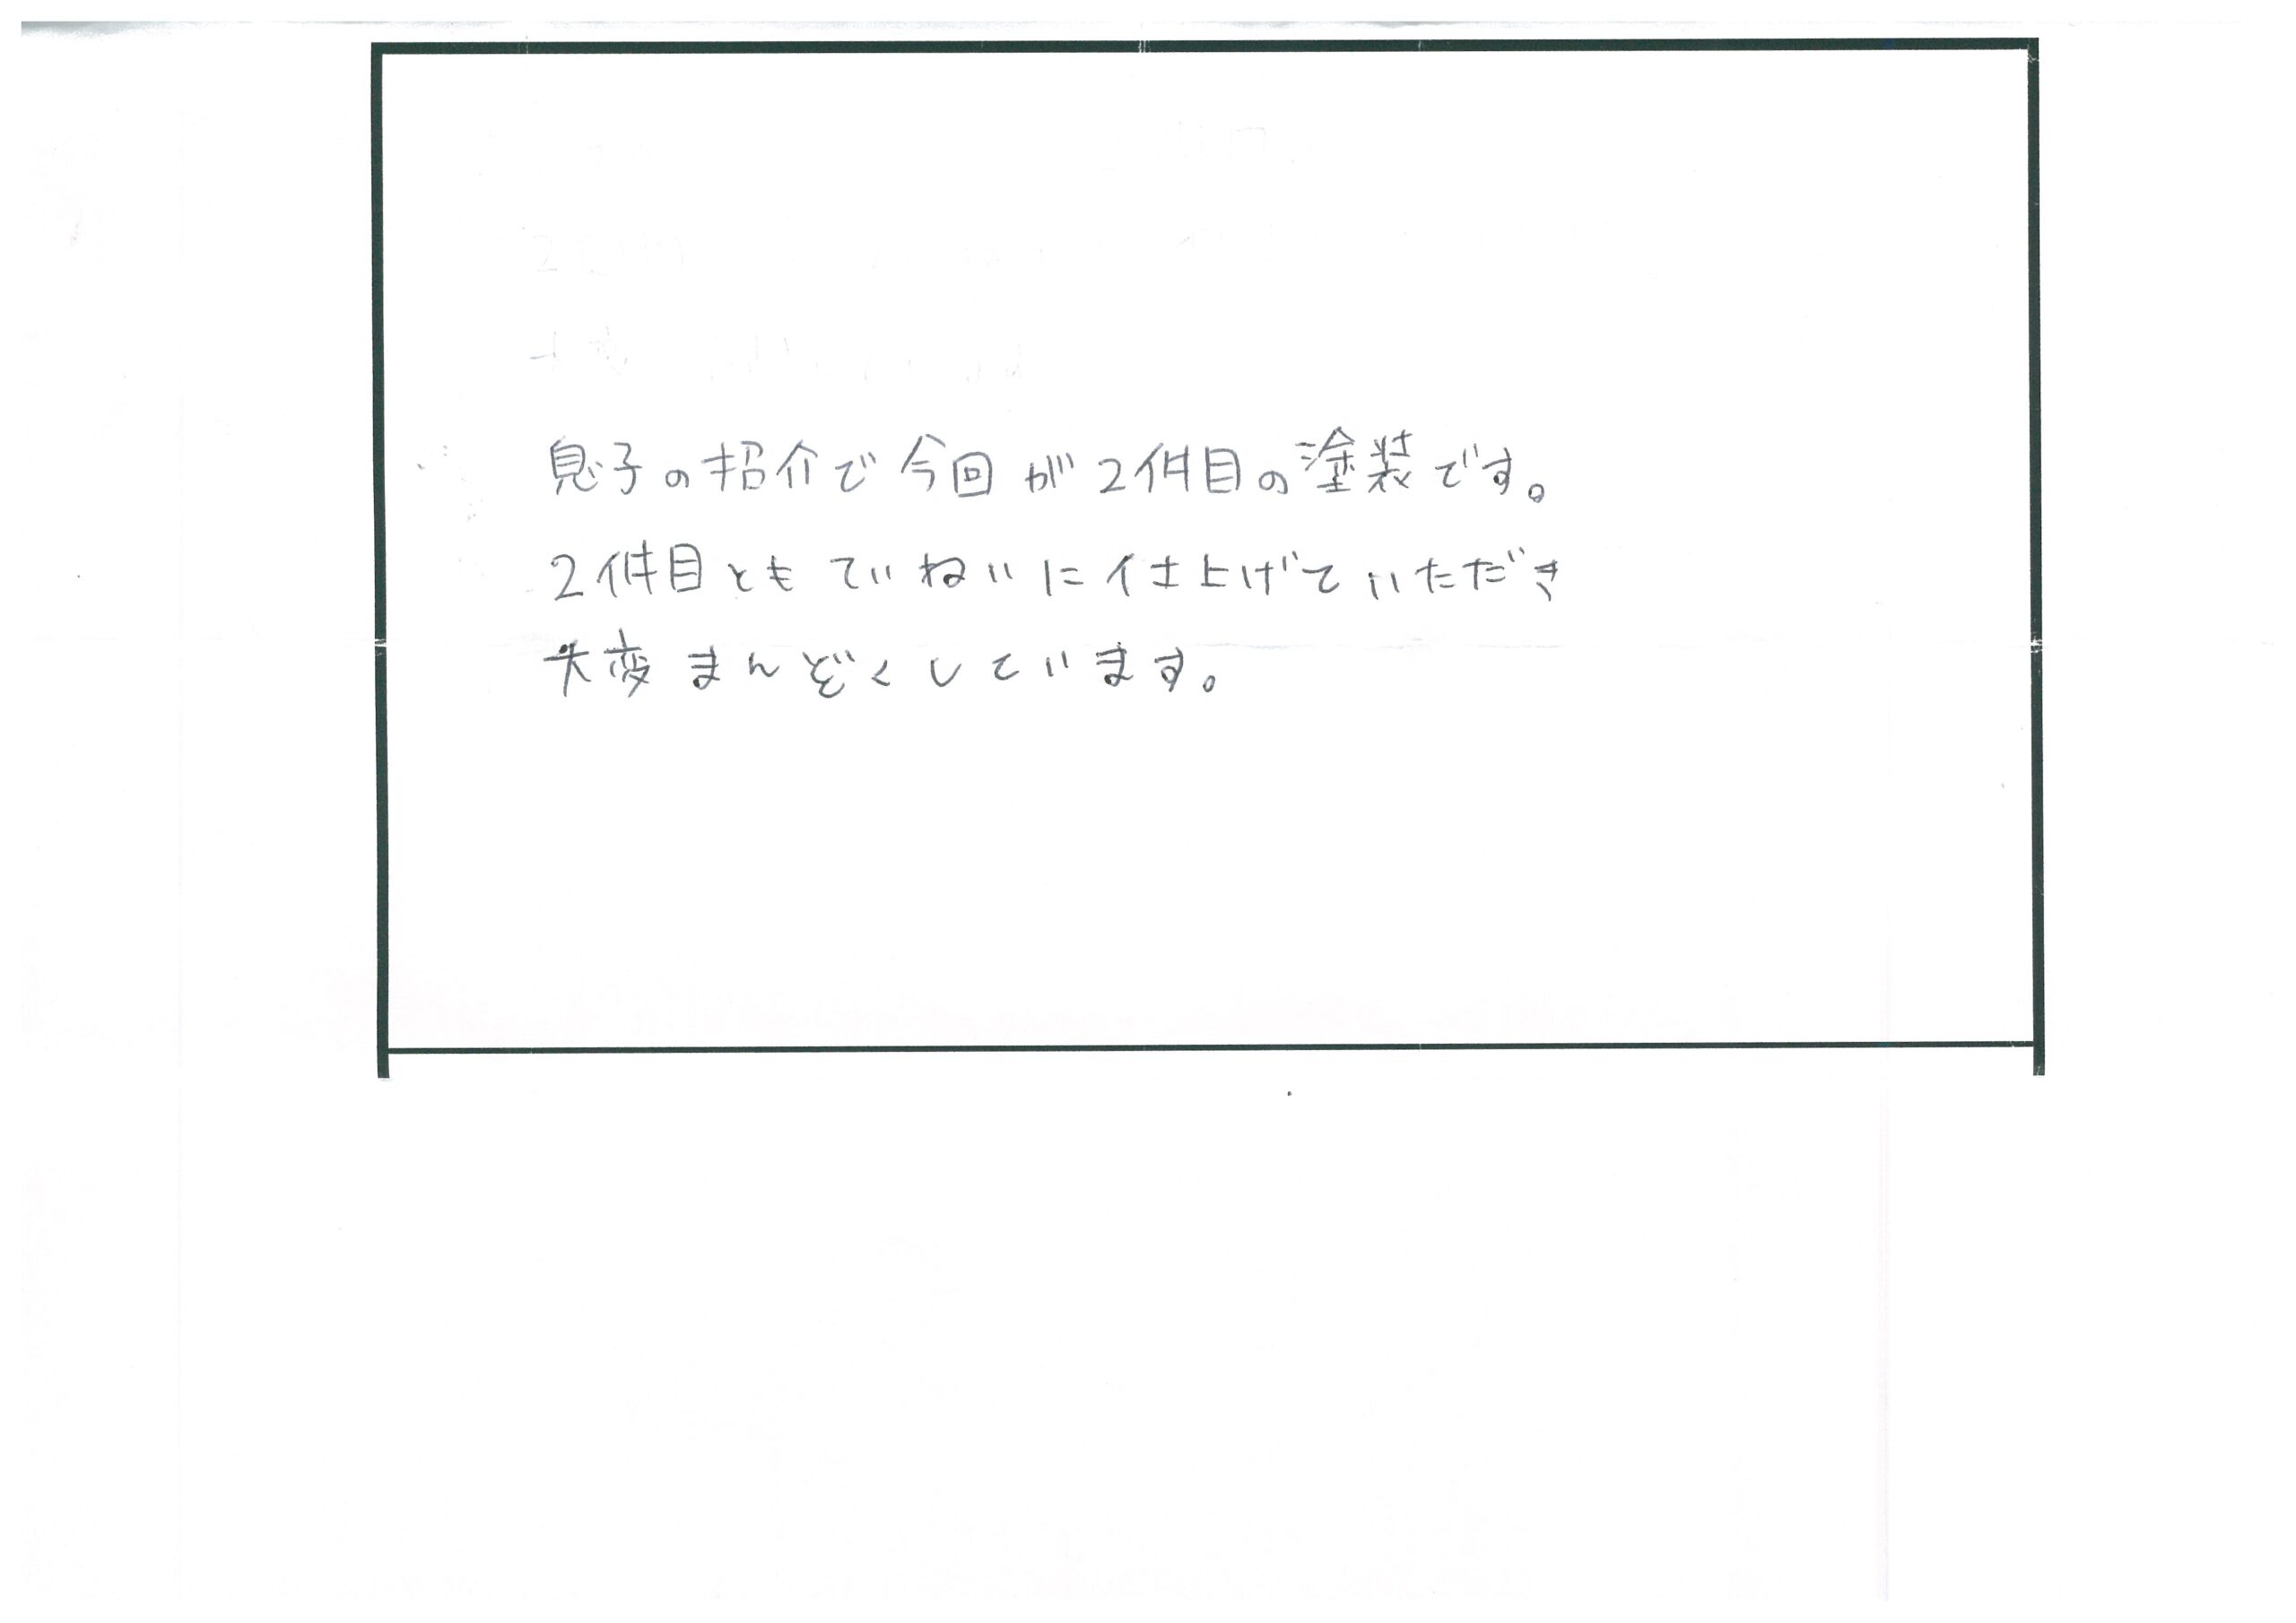 息子の紹介で今回が2件目の塗装です。
2件目ともていねいに仕上げていただき
大変まんぞくしています。